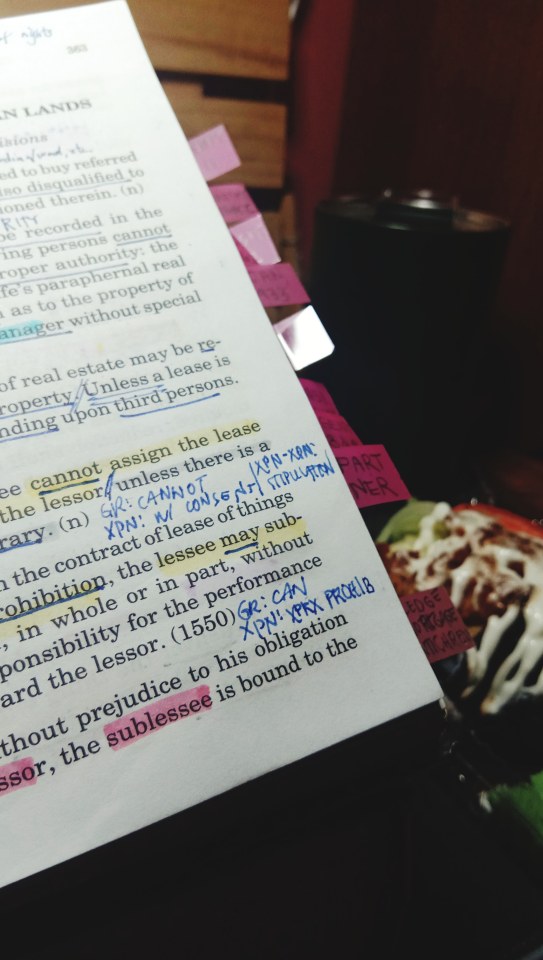 363
N LANDS
isions
ed to buy referred
lso disqualified to
ioned therein. (n)
RITY
be recorded in the
ing persons cannot
roper authority: the
fe's paraphernal real
i as to the property of
anager without special
of real estate may be re-
roperty. Unless a lease is
nding upon third persons.
ee cannot assign the lease
the lessor, unless there is a
rary. (n)
GR: CANNOT
XPN: W/ CONSENT/
XPN-XPN:
STIPULATION
n the contract of lease of things
ohibition, the lessee may sub-
, in whole or in part, without
ponsibility for the performance
ard the lessor. (1550)
GR: CAN
XPN: XPRX PROHIB
thout prejudice to his obligation
ssor, the sublessee is bound to the
PART
NER